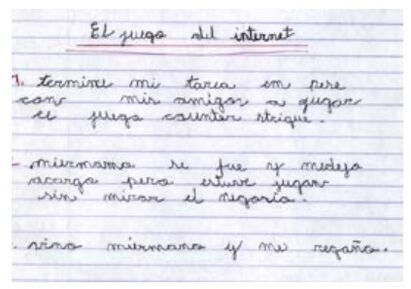 El juego del internet
1. termine mi tarea em pese
con mis amigos a gugar
el juego counter strique.
miermama se fue y medejo
acargo pero estuve jugan
sin mirar el negocio.
. vino miermano y me regaño.